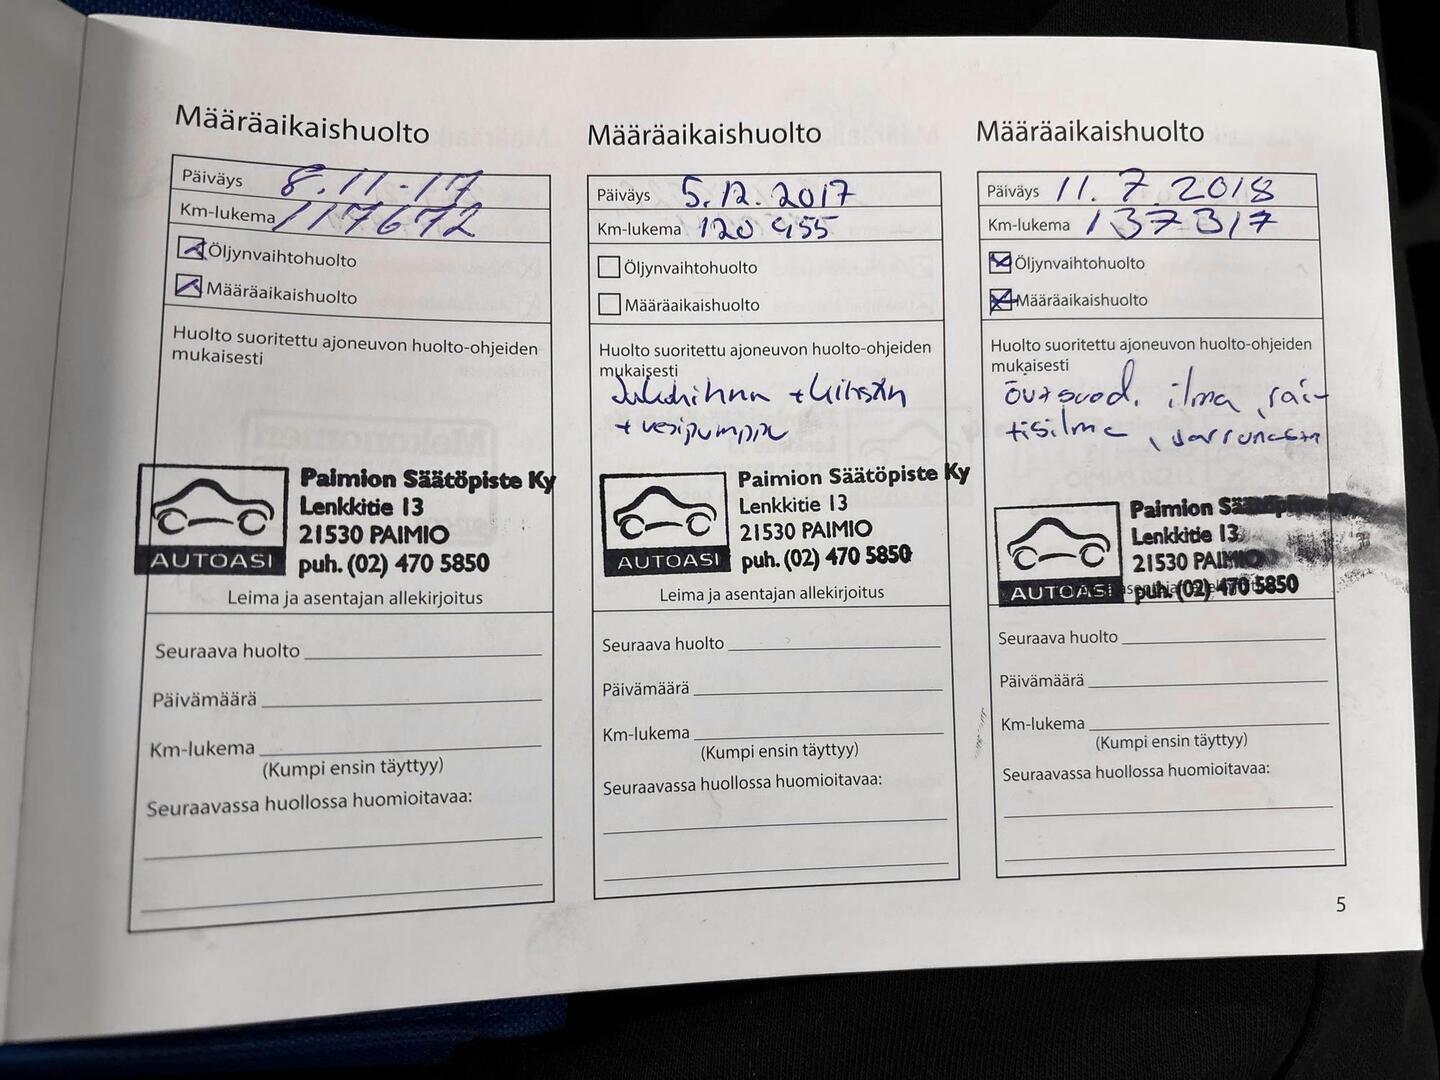 Määräaikaishuolto
Päiväys 8.11.-17
Km-lukema 117672
Öljynvaihtohuolto
Määräaikaishuolto
Huolto suoritettu ajoneuvon huolto-ohjeiden
mukaisesti
AUTOASI
Paimion Säätöpiste Ky
Lenkkitie 13
21530 PAIMIO
puh. (02) 470 5850
Leima ja asentajan allekirjoitus
Seuraava huolto
Päivämäärä
Km-lukema
(Kumpi ensin täyttyy)
Seuraavassa huollossa huomioitavaa:
Määräaikaishuolto
Päiväys 5.12.2017
Km-lukema 120 455
Öljynvaihtohuolto
Määräaikaishuolto
Huolto suoritettu ajoneuvon huolto-ohjeiden
mukaisesti
Jakohihna
+ vesipumppu
AUTOASI
Paimion Säätöpiste Ky
Lenkkitie 13
21530 PAIMIO
puh. (02) 470 5850
Leima ja asentajan allekirjoitus
Seuraava huolto
Päivämäärä
Km-lukema
(Kumpi ensin täyttyy)
Seuraavassa huollossa huomioitavaa:
Määräaikaishuolto
Päiväys 11.7.2018
Km-lukema 137317
Öljynvaihtohuolto
Määräaikaishuolto
Huolto suoritettu ajoneuvon huolto-ohjeiden
mukaisesti
suod. ilma, rai-
tisilma,
AUTOASI
Paimion Säätöpiste Ky
Lenkkitie 13
21530 PAIMIO
puh. (02) 470 5850
Seuraava huolto
Päivämäärä
Km-lukema
(Kumpi ensin täyttyy)
Seuraavassa huollossa huomioitavaa:
5